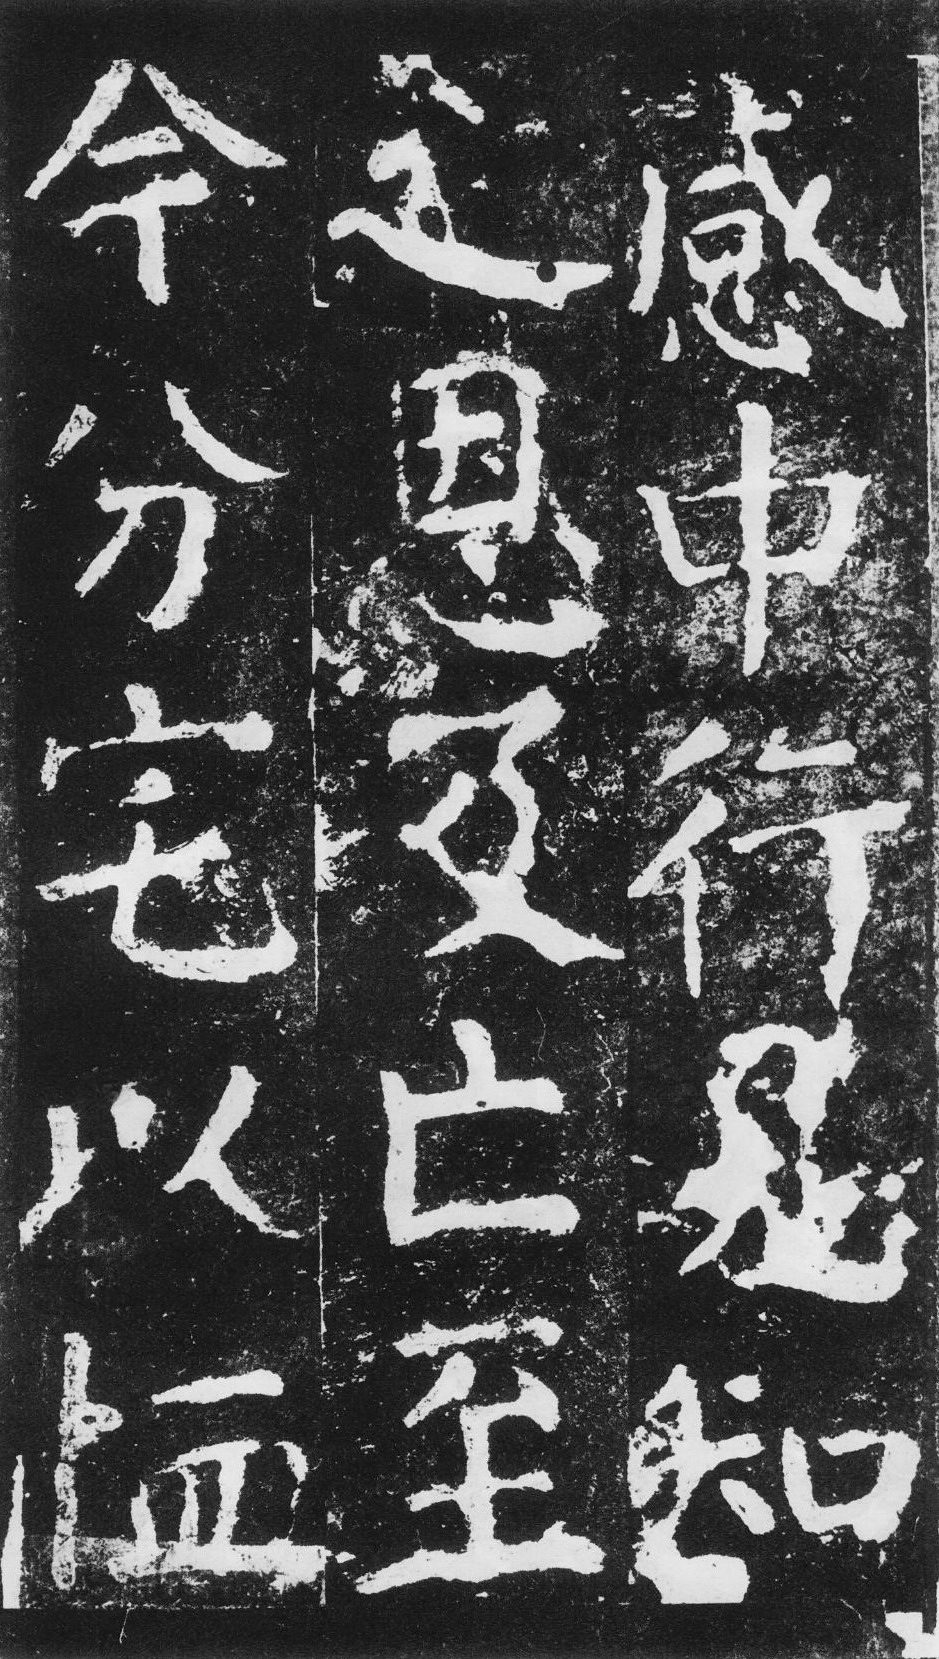 感中行見知
之恩及亡至
今分宅以恤